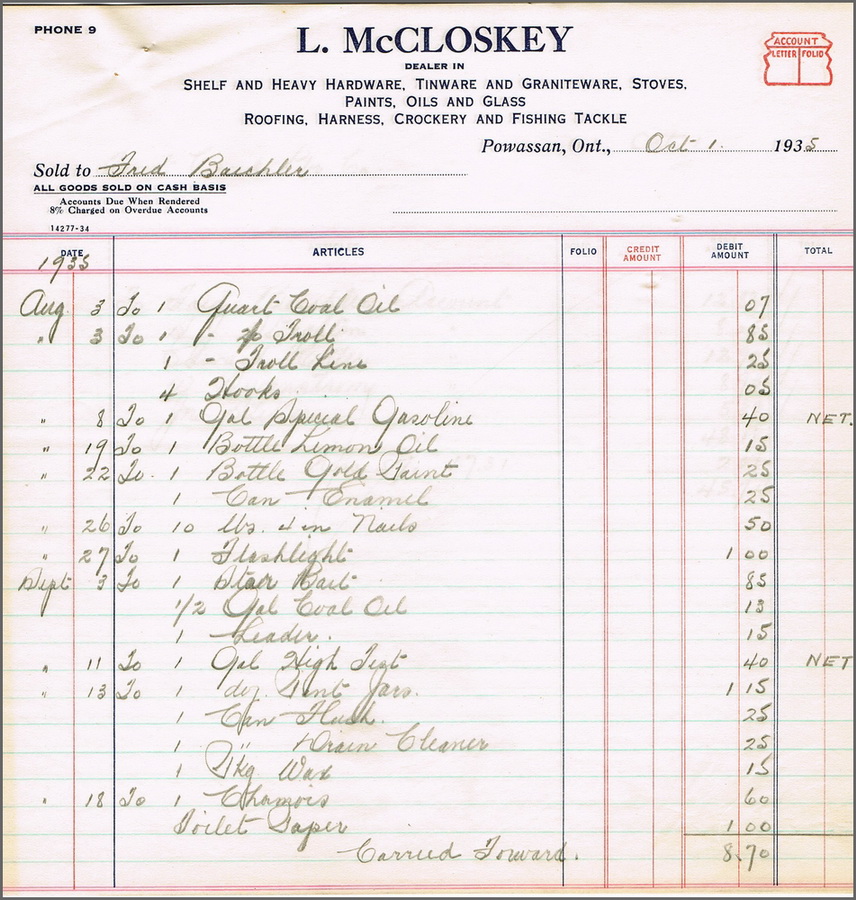 PHONE 9
L. McCLOSKEY
DEALER IN
SHELF AND HEAVY HARDWARE, TINWARE AND GRANITEWARE, STOVES,
PAINTS, OILS AND GLASS
ROOFING, HARNESS, CROCKERY AND FISHING TACKLE
ACCOUNT
LETTER FOLIO
Powassan, Ont., Oct 1. 1935
Sold to Fred Baechler
ALL GOODS SOLD ON CASH BASIS
Accounts Due When Rendered
8% Charged on Overdue Accounts
14277-34
DATE ARTICLES FOLIO CREDIT AMOUNT DEBIT AMOUNT TOTAL
1935
Aug. 3 To 1 Quart Coal Oil 07
" 3 To 1 - Troll 85
1 - Troll Line 25
4 Hooks 05
" 8 To 1 Gal Special Gasoline 40 NET.
" 19 To 1 Bottle Lemon Oil 15
" 22 To. 1 Bottle Gold Paint 25
1 Can Enamel 25
" 26 To 10 lbs. 4 in Nails 50
" 27 To 1 Flashlight 1 00
Sept 3 To 1 Bait 85
1/2 Gal Coal Oil 13
1 Leader. 15
" 11 To 1 Gal High Test 40 NET
" 13 To 1 doz. Pint Jars. 1 15
1 Can Flush. 25
1 " Drain Cleaner 25
1 Pkg Wax 15
" 18 To 1 Chamois 60
Toilet Paper 1 00
Carried Forward. 8.70